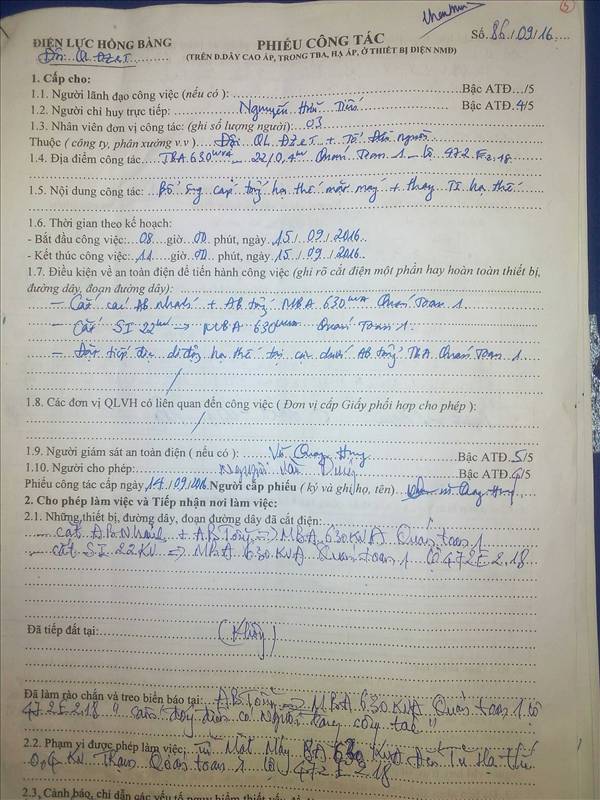 ĐIỆN LỰC HỒNG BÀNG
Đội QL ĐZ&T
PHIẾU CÔNG TÁC
Số: 86/09/16
(TRÊN Đ.DÂY CAO ÁP, TRONG TBA, HẠ ÁP, Ở THIẾT BỊ DIỆN NMĐ)
1. Cấp cho:
1.1. Người lãnh đạo công việc (nếu có): Bậc ATĐ.../5
1.2. Người chỉ huy trực tiếp: Nguyễn Hữu Bậc ATĐ.4/5
1.3. Nhân viên đơn vị công tác: (ghi số lượng người): 03
Thuộc (công ty, phân xưởng v.v) Đội QL ĐZ&T + Tổ
1.4. Địa điểm công tác TBA 630 KVA - 22/0,4 KV Quán Toan 1 - lộ 472 E2.18
1.5. Nội dung công tác: cáp tổng hạ thế mặt máy + thay TI hạ thế
1.6. Thời gian theo kế hoạch:
- Bắt đầu công việc: 08 giờ 00 phút, ngày 15/09/2016.
- Kết thúc công việc: 11 giờ 00 phút, ngày 15/09/2016.
1.7. Điều kiện về an toàn điện để tiến hành công việc (ghi rõ cắt điện một phần hay hoàn toàn thiết bị,
đường dây, đoạn đường dây):
- Cắt các AB nhánh + AB tổng MBA 630 KVA Quán Toan 1
- Cắt SI 22 KV → MBA 630 KVA Quán Toan 1.
- Đặt tiếp địa di động hạ thế tại cực dưới AB tổng TBA Quán Toan 1
1.8. Các đơn vị QLVH có liên quan đến công việc (Đơn vị cấp Giấy phối hợp cho phép):
1.9. Người giám sát an toàn điện (nếu có): Vũ Quang Hưng Bậc ATĐ.5/5
1.10. Người cho phép: Văn Bậc ATĐ.4/5
Phiếu công tác cấp ngày 14/09/2016 Người cấp phiếu (ký và ghi họ, tên) Vũ Quang Hưng
2. Cho phép làm việc và Tiếp nhận nơi làm việc:
2.1. Những thiết bị, đường dây, đoạn đường dây đã cắt điện:
- cắt A.B Nhánh + A.B Tổng → MBA 630 KVA Quán toan 1
- cắt SI 22 KV → MBA 630 KVA Quán toan 1 lộ 472E2.18
Đã tiếp đất tại: (Không)
Đã làm rào chắn và treo biển báo tại: AB Tổng → MBA 630 KVA Quán toan 1 lộ
472E2.18 " cấm đóng điện có người đang công tác "
2.2. Phạm vi được phép làm việc: Từ Mặt Máy BA 630 KVA Đến Tủ Hạ thế
0,4 KV Trạm Quán toan 1 lộ 472E2.18
2.3. Cảnh báo, chỉ dẫn các yếu tố nguy hiểm